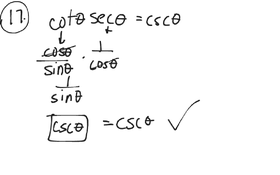 17. cotθ secθ = cscθ
cosθ/sinθ · 1/cosθ
1/sinθ
cscθ = cscθ ✓